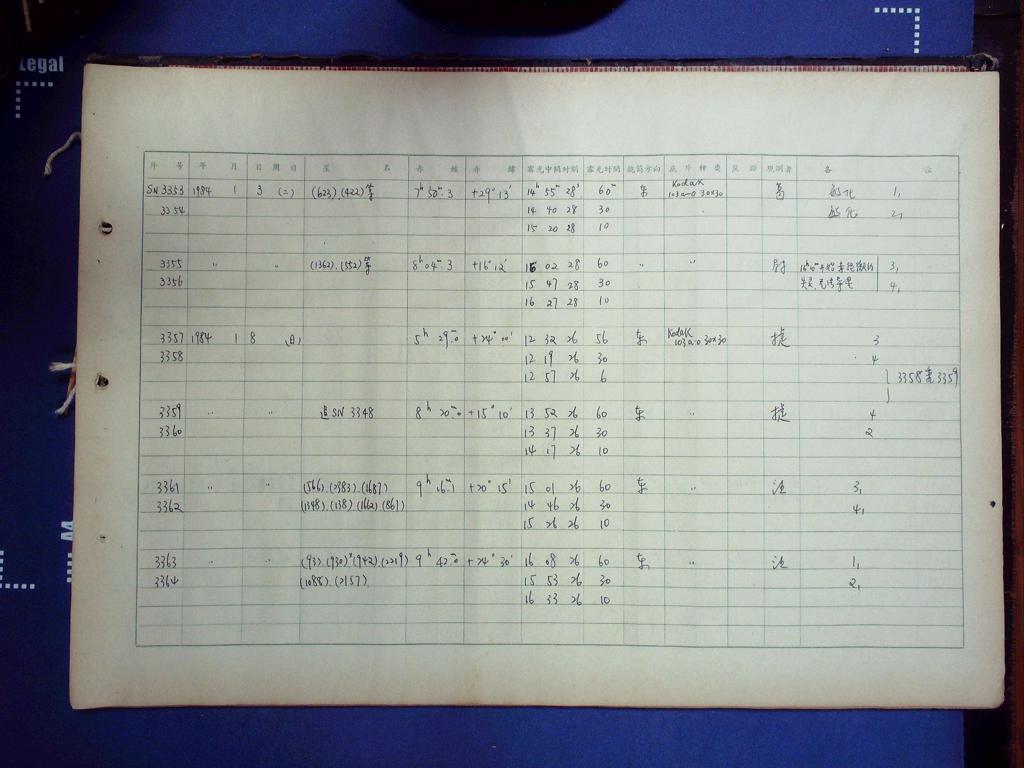 Legal
片 号 年 月 日 周 日 星 名 赤 经 赤 纬 露光中间时刻 露光时间 镜筒方向 底片种类 星 等 观测者 备 注
SN 3353 1984 1 3 (二) (623).(422)等 7h 50m.3 +29° 13' 14h 55m 28s 60m 东 Kodak 103a-0 30x30 敏化 1,
3354 14 40 28 30 敏化 2,
15 20 28 10
3355 〃 〃 (1362).(552)等 8h 04m.3 +16° 12' 16 02 28 60 〃 3,
3356 15 47 28 30 4,
16 27 28 10
3357 1984 1 8 (日) 5h 29m.0 +24° 00' 12 32 26 56 东 Kodak 103a-0 30x30 捷 3
3358 12 19 26 30 4
12 57 26 6 3358 3359
3359 〃 〃 追 SN 3348 8h 20m.0 +15° 10' 13 52 26 60 东 〃 捷 4
3360 13 37 26 30 2
14 17 26 10
3361 〃 〃 (566).(2383).(1687) 9h 16m.1 +20° 15' 15 01 26 60 东 〃 3,
3362 (1348).(138).(1662).(861) 14 46 26 30 4,
15 26 26 10
3363 〃 〃 (93).(930)*(942).(2219) 9h 42m.0 +24° 30' 16 08 26 60 东 〃 1,
3364 (1088).(2157) 15 53 26 30 2,
16 33 26 10